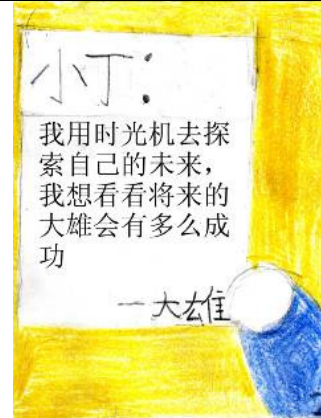 小丁：
我用时光机去探
索自己的未来，
我想看看将来的
大雄会有多么成
功
—大雄